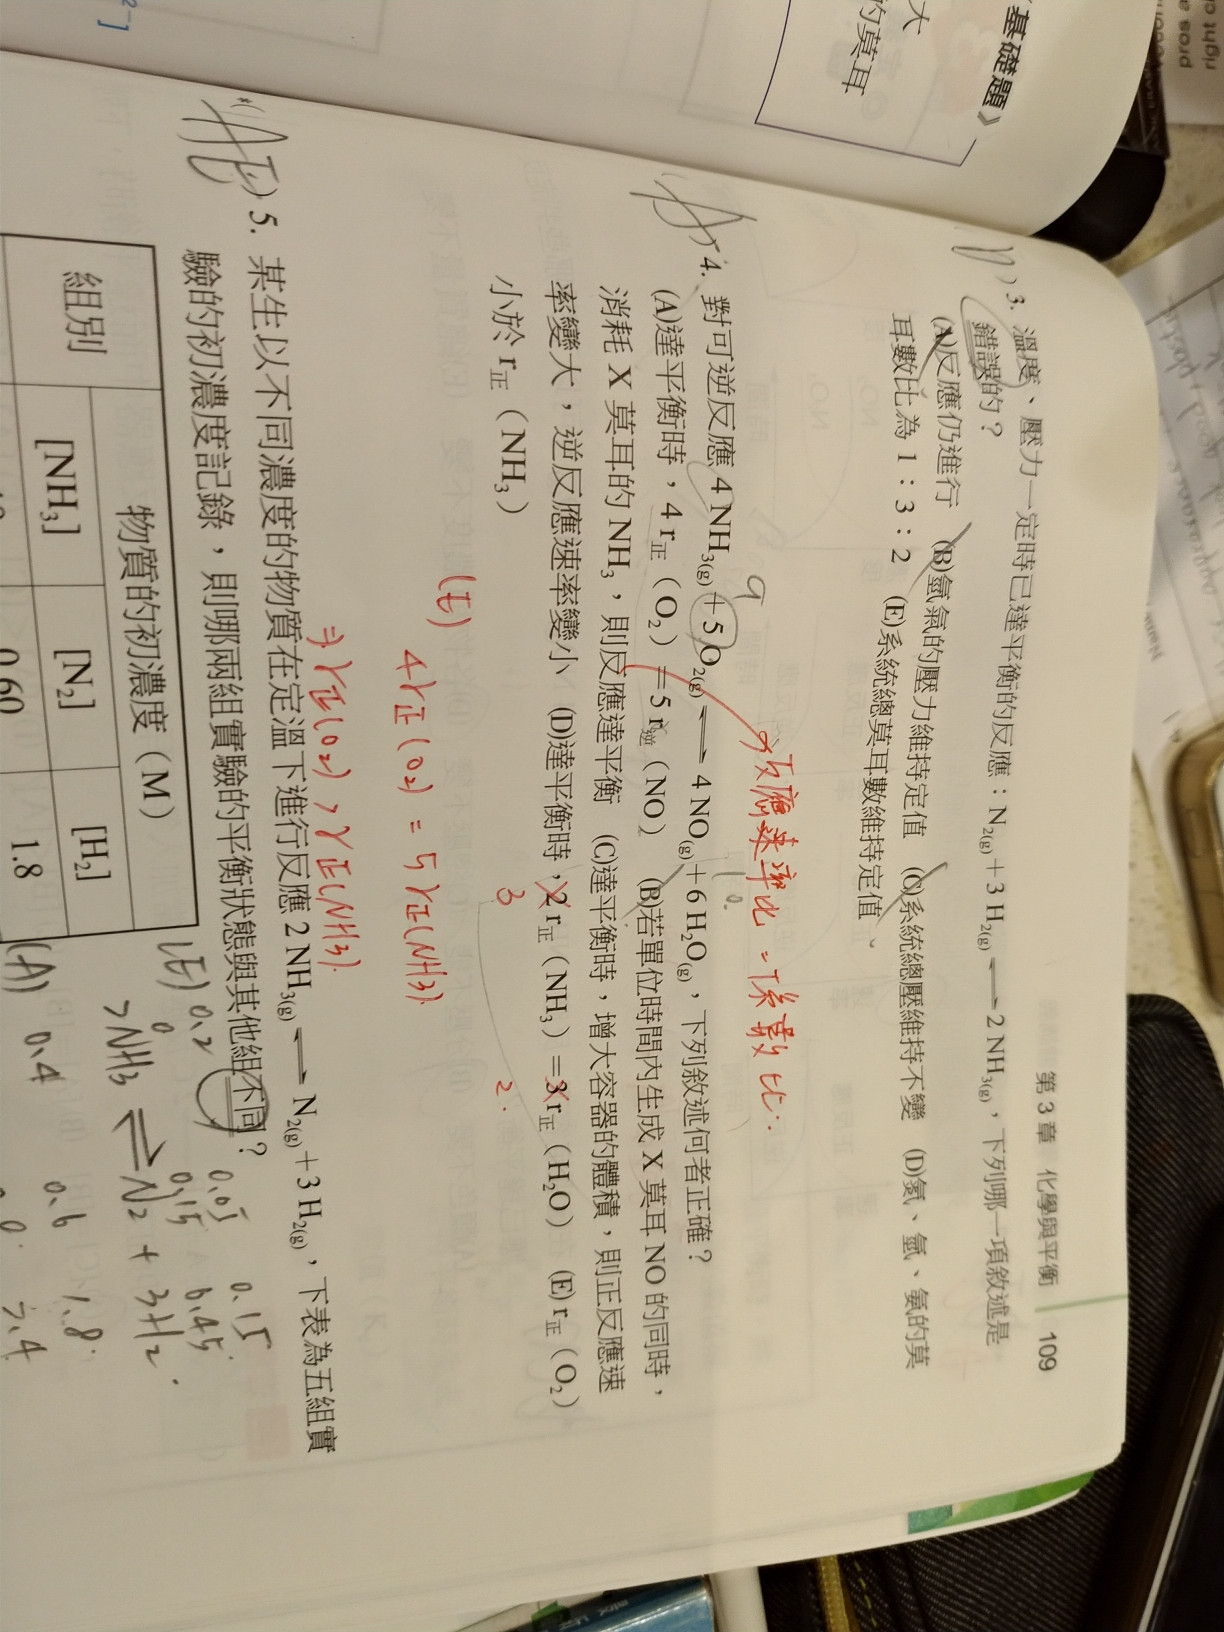 《基礎題》
大
的莫耳
right a
第 3 章 化學與平衡 109
3. 溫度、壓力一定時已達平衡的反應：N₂(g)＋3 H₂(g) ⇌ 2 NH₃(g)，下列哪一項敘述是
錯誤的？
(A)反應仍進行 (B)氫氣的壓力維持定值 (C)系統總壓維持不變 (D)氮、氫、氨的莫
耳數比為 1：3：2 (E)系統總莫耳數維持定值
反應速率比＝係數比．
9
10.
(A) 4. 對可逆反應 4 NH₃(g)＋5 O₂(g) ⇌ 4 NO(g)＋6 H₂O(g)，下列敘述何者正確？
(A)達平衡時，4 r正（O₂）＝5 r逆（NO） (B)若單位時間內生成 X 莫耳 NO 的同時，
消耗 X 莫耳的 NH₃，則反應達平衡 (C)達平衡時，增大容器的體積，則正反應速
率變大，逆反應速率變小 (D)達平衡時，2 r正（NH₃）＝3 r正（H₂O） (E) r正（O₂）
3 2.
小於 r正（NH₃）
(E)
4 r正(O₂) = 5 r正(NH₃)
⇒ r正(O₂) > r正(NH₃).
*(AE) 5. 某生以不同濃度的物質在定溫下進行反應 2 NH₃(g) ⇌ N₂(g)＋3 H₂(g)，下表為五組實
驗的初濃度記錄，則哪兩組實驗的平衡狀態與其他組不同？
組別 物質的初濃度（M）
[NH₃] [N₂] [H₂]
0.60 1.8
(E) 0.2 0.05 0.15
0 0.15 0.45
2NH₃ ⇌ N₂ + 3H₂.
(A) 0.4 0.6 1.8